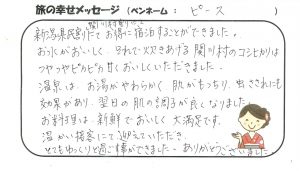 旅の幸せメッセージ (ペンネーム: ピース )
関川村割りにて
新潟県民割りでお得に宿泊することができました。
お水がおいしく、それで炊きあげる関川村のコシヒカリは
つやつやピカピカ甘くておいしくいただきました。
温泉は、お湯がやわらかく、肌がもっちり、虫さされにも
効果があり、翌日の肌の調子が良くなりました。
お料理は、新鮮でおいしく大満足です。
温かい接客にて迎えていただき、
とてもゆっくりと過ごす事ができました。ありがとうございました